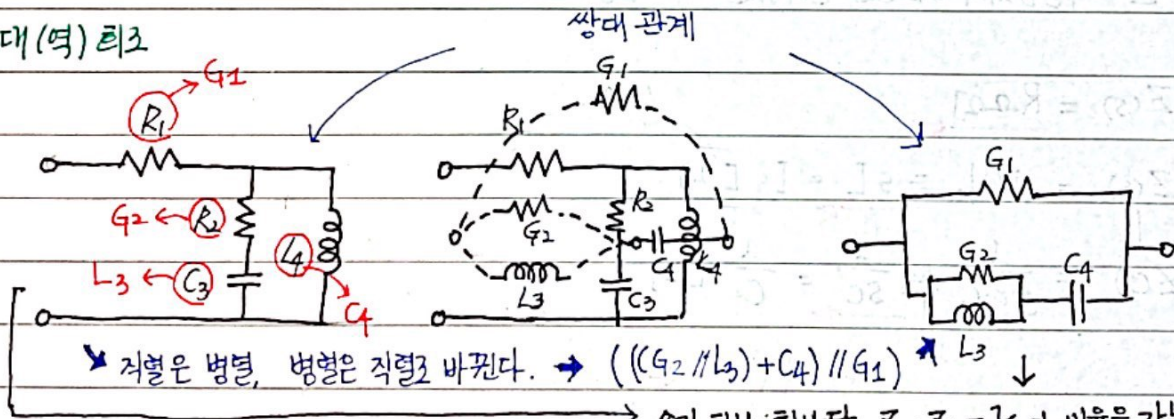 대(역) 회로
쌍대 관계
R1 → G1
G2 ← R2
L3 ← C3
L4
C4
G1
R1
G2
L3
R2
C4
L4
C3
G1
G2
C4
L3
직렬은 병렬, 병렬은 직렬로 바뀐다. → (((G2//L3)+C4)//G1)